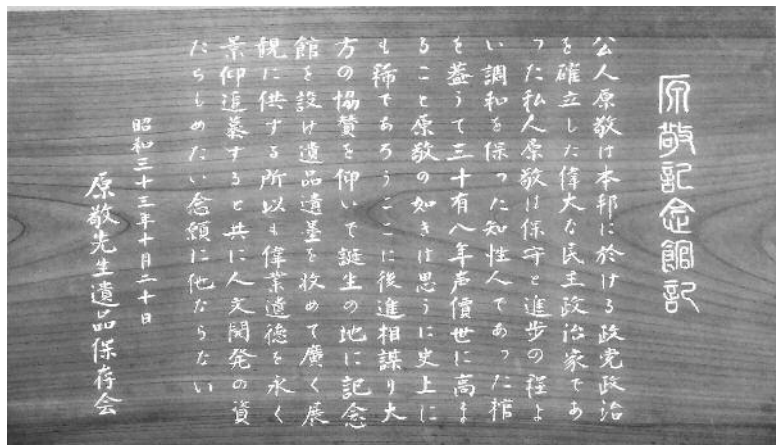 原敬記念館記
公人原敬は本邦に於ける政党政治
を確立した偉大な民主政治家であ
つた私人原敬は保守と進歩の程よ
い調和を保つた知性人であつた棺
を蓋うて三十有八年声價世に高ま
ること原敬の如きは思うに史上に
も稀であろうここに後進相謀り大
方の協賛を仰いで誕生の地に記念
館を設け遺品遺墨を收めて廣く展
観に供する所以も偉業遺徳を永く
景仰追慕すると共に人文開発の資
たらしめたい念願に他ならない
昭和三十三年十月二十日
原敬先生遺品保存会